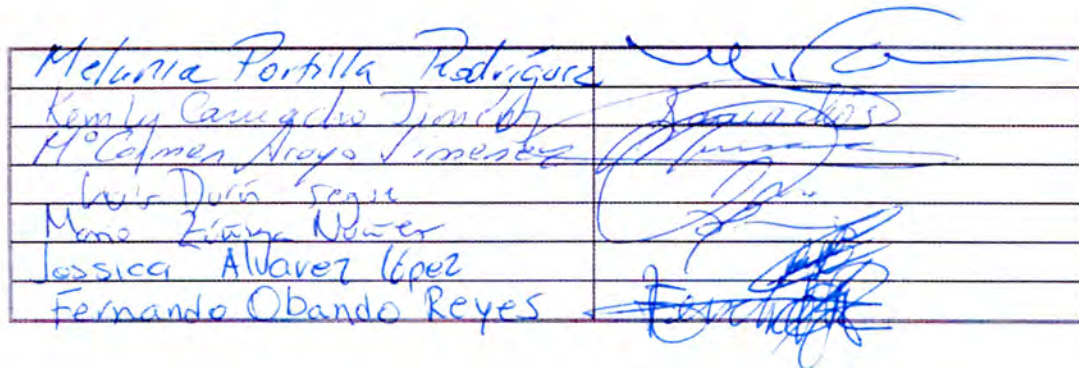 Melania Portilla Rodríguez
Kemly Camacho Jiménez
Mª Carmen Aroyo Jimenez
Luis Durán Segura
Mario Zúñiga Núñez
Jossica Alvarez López
Fernando Obando Reyes